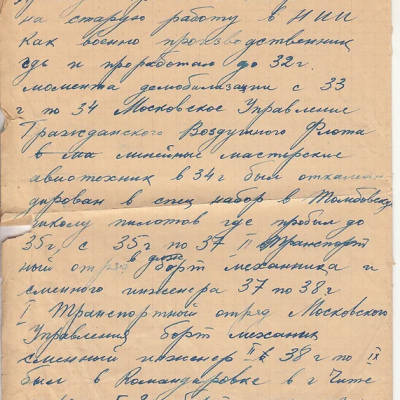 на старую работу в НИИ
как военно производственник
где и проработаю до 32 г.
момента демобилизации с 33
г по 34 Московское Управление
Гражданского Воздушного Флота
в линейные мастерские
авиотехник в 34 г был откоман
дирован в спец набор в Томбовску
школу пилотов где пробыл до
35 г, с 35 г по 37 II Транспорт
ный отряд в долж борт механника и
сменного инженера 37 по 38 г
I Транспортный отряд Московского
Управления борт механик
сменный инженер 38 г по IX
был в Командировке в г Чите